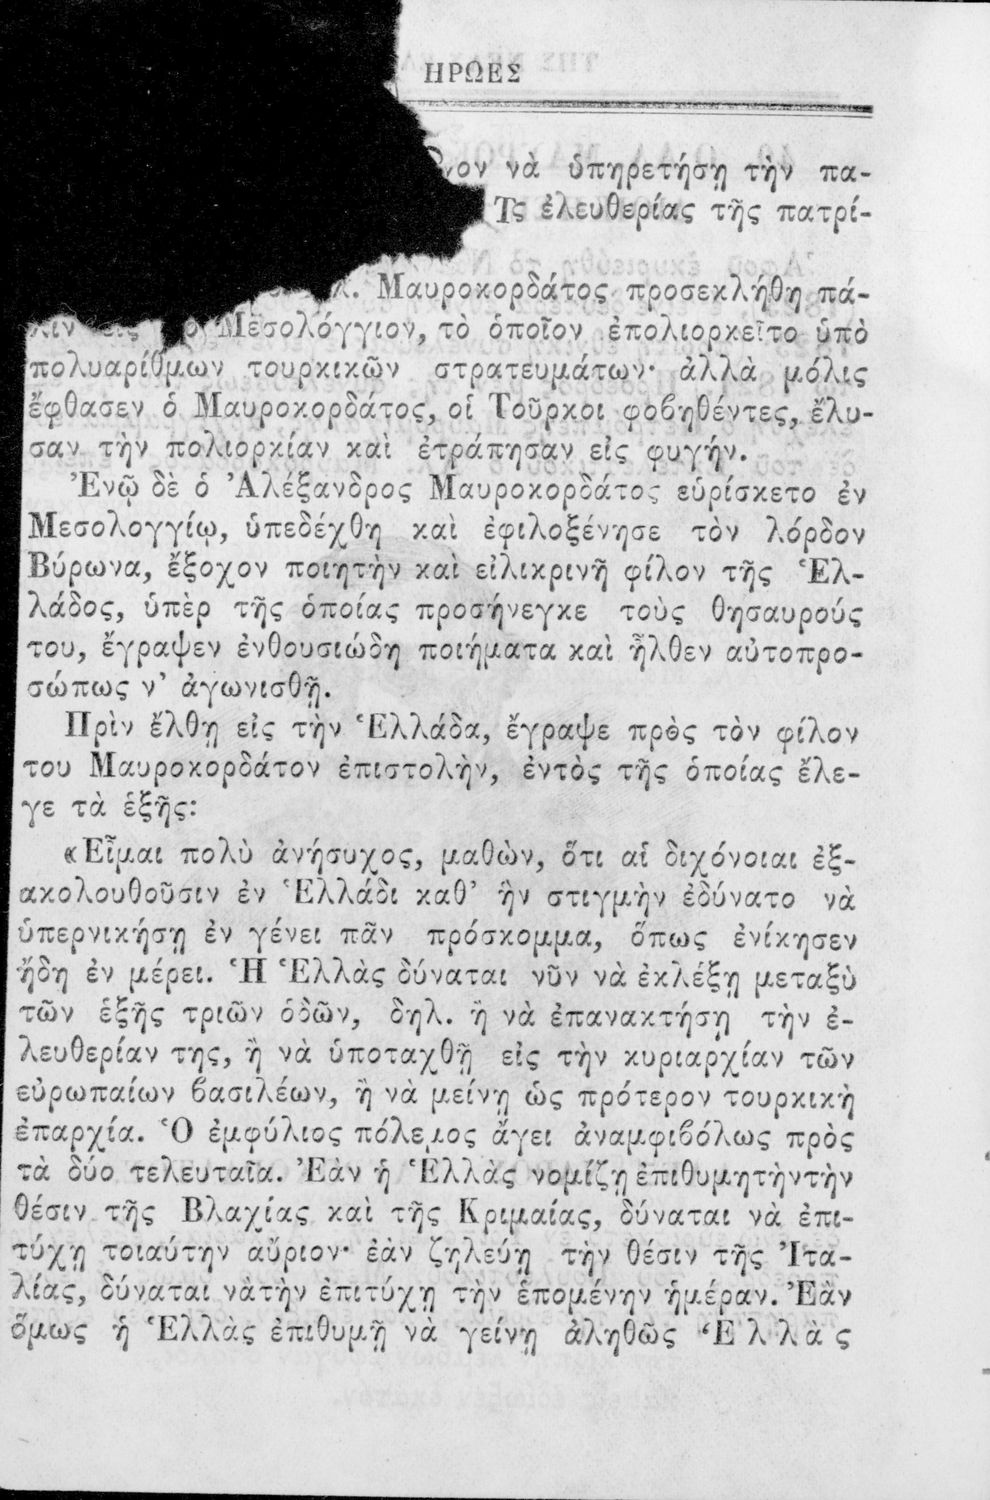 ΗΡΩΕΣ
νὰ ὑπηρετήσῃ τὴν πα-
ἐλευθερίας τῆς πατρί-
Μαυροκορδάτος προσεκλήθη πά-
Μεσολόγγιον, τὸ ὁποῖον ἐπολιορκεῖτο ὑπὸ
πολυαρίθμων τουρκικῶν στρατευμάτων· ἀλλὰ μόλις
ἔφθασεν ὁ Μαυροκορδάτος, οἱ Τοῦρκοι φοβηθέντες, ἔλυ-
σαν τὴν πολιορκίαν καὶ ἐτράπησαν εἰς φυγήν.
Ἐνῷ δὲ ὁ Ἀλέξανδρος Μαυροκορδάτος εὑρίσκετο ἐν
Μεσολογγίῳ, ὑπεδέχθη καὶ ἐφιλοξένησε τὸν λόρδον
Βύρωνα, ἔξοχον ποιητὴν καὶ εἰλικρινῆ φίλον τῆς Ἑλ-
λάδος, ὑπὲρ τῆς ὁποίας προσήνεγκε τοὺς θησαυρούς
του, ἔγραψεν ἐνθουσιώδη ποιήματα καὶ ἦλθεν αὐτοπρο-
σώπως ν' ἀγωνισθῇ.
Πρὶν ἔλθῃ εἰς τὴν Ἑλλάδα, ἔγραψε πρὸς τὸν φίλον
του Μαυροκορδάτον ἐπιστολὴν, ἐντὸς τῆς ὁποίας ἔλε-
γε τὰ ἑξῆς:
«Εἶμαι πολὺ ἀνήσυχος, μαθὼν, ὅτι αἱ διχόνοιαι ἐξ-
ακολουθοῦσιν ἐν Ἑλλάδι καθ' ἣν στιγμὴν ἐδύνατο νὰ
ὑπερνικήσῃ ἐν γένει πᾶν πρόσκομμα, ὅπως ἐνίκησεν
ἤδη ἐν μέρει. Ἡ Ἑλλὰς δύναται νῦν νὰ ἐκλέξῃ μεταξὺ
τῶν ἑξῆς τριῶν ὁδῶν, δηλ. ἢ νὰ ἐπανακτήσῃ τὴν ἐ-
λευθερίαν της, ἢ νὰ ὑποταχθῇ εἰς τὴν κυριαρχίαν τῶν
εὐρωπαίων βασιλέων, ἢ νὰ μείνῃ ὡς πρότερον τουρκικὴ
ἐπαρχία. Ὁ ἐμφύλιος πόλεμος ἄγει ἀναμφιβόλως πρὸς
τὰ δύο τελευταῖα. Ἐὰν ἡ Ἑλλὰς νομίζῃ ἐπιθυμητὴντὴν
θέσιν τῆς Βλαχίας καὶ τῆς Κριμαίας, δύναται νὰ ἐπι-
τύχῃ τοιαύτην αὔριον· ἐὰν ζηλεύῃ τὴν θέσιν τῆς Ἰτα-
λίας, δύναται νὰτὴν ἐπιτύχῃ τὴν ἑπομένην ἡμέραν. Ἐὰν
ὅμως ἡ Ἑλλὰς ἐπιθυμῇ νὰ γείνῃ ἀληθῶς Ἑ λ λ ὰ ς